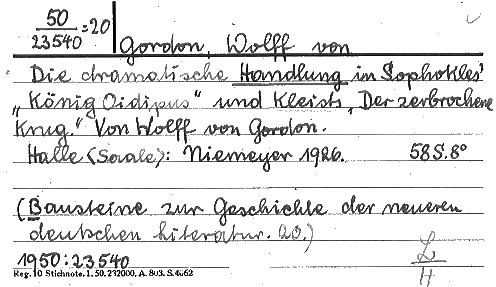 50
23540=20
Gordon, Wolff von
Die dramatische Handlung in Sophokles'
„König Oidipus“ und Kleists „Der zerbrochene
Krug.“ Von Wolff von Gordon.
Halle (Saale): Niemeyer 1926. 58 S. 8°
(Bausteine zur Geschichte der neueren
deutschen Literatur. 20.)
1950:23540
L
H
Reg. 10 Stichnote. 1. 50. 232000. A. 803. S. 4662